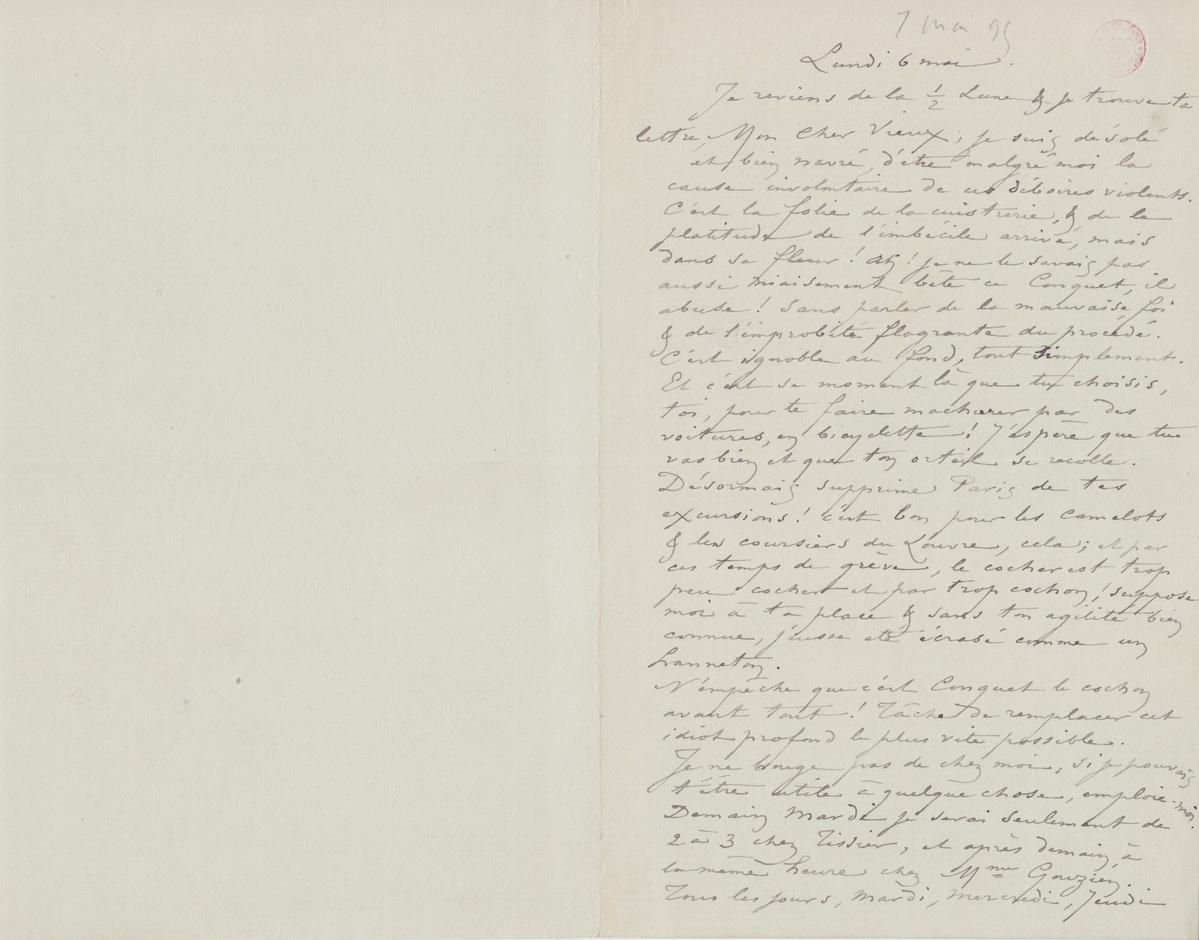 7 mai 95
Lundi 6 mai.
Je reviens de la ½ Lune & je trouve ta
lettre, Mon Cher Vieux, je suis désolé
et bien navré, d'être malgré moi la
cause involontaire de ces déboires violents.
C'est la folie de la cuistrerie, & de la
platitude de l'imbécile arrivé, mais
dans sa fleur ! Ah ! je ne le savais pas
aussi niaisement bête ce Conquet, il
abuse ! Sans parler de la mauvaise foi
& de l'improbité flagrante du procédé.
C'est ignoble au fond, tout simplement.
Et c'est ce moment là que tu choisis,
toi, pour te faire macherer par des
voitures, en bicyclette ! J'espère que tu
vas bien et que ton orteil se recolle.
Désormais supprime Paris de tes
excursions ! c'est bon pour les camelots
& les coursiers du Louvre, cela ; et par
ces temps de grève, le cocher est trop
peu cocher et par trop cochon, ! suppose
moi à ta place & sans ton agilité bien
connue, j'eusse été écrasé comme un
hanneton.
N'empêche que c'est Conquet le cochon
avant tout ! Tâche de remplacer cet
idiot profond le plus vite possible.
Je ne bouge pas de chez moi, si je pouvais
t'être utile à quelque chose, emploie-moi.
Demain Mardi je serai seulement de
2 à 3 chez Tissier, et après demain, à
la même heure chez Mme Gouzien.
Tous les jours, mardi, mercredi, Jeudi